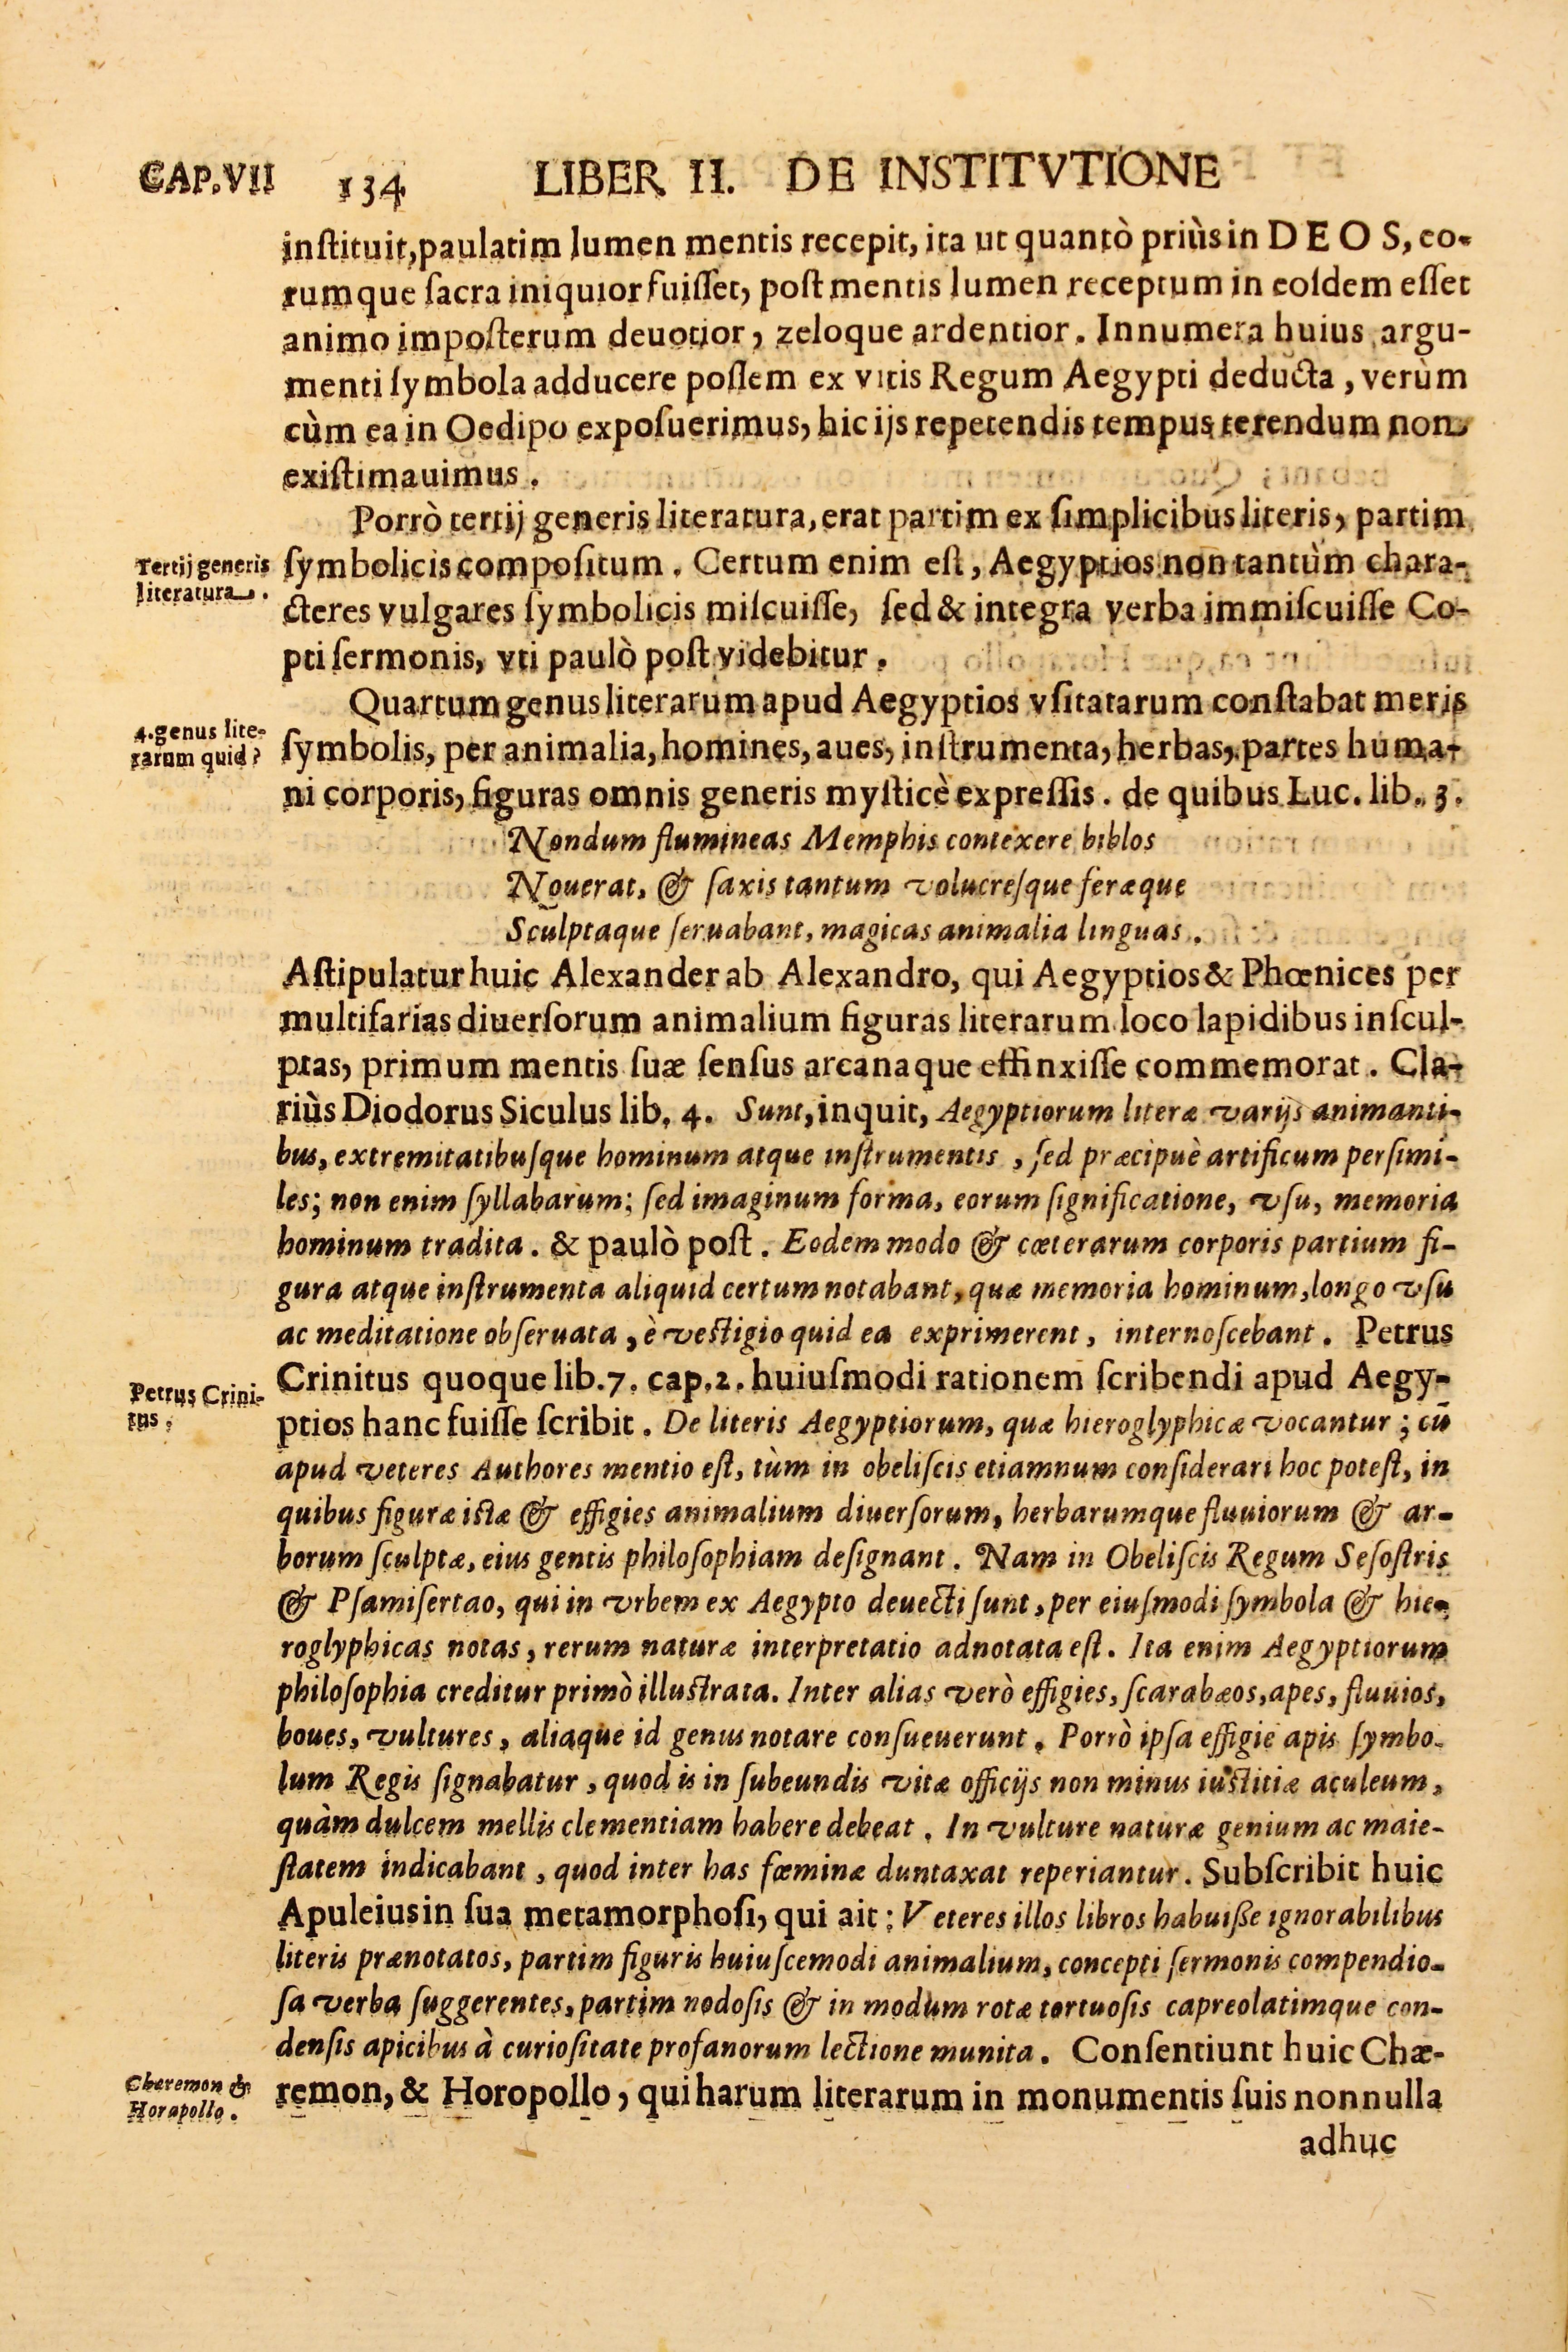 CAP.VII 134 LIBER II. DE INSTITVTIONE
inſtituit, paulatim lumen mentis recepit, ita ut quantò priùs in DEOS, eo-
rumque ſacra iniquior fuiſſet, poſt mentis lumen receptum in eoſdem eſſet
animo impoſterum deuotior, zeloque ardentior. Innumera huius argu-
menti ſymbola adducere poſſem ex vitis Regum Aegypti deducta, verùm
cùm ea in Oedipo expoſuerimus, hic ijs repetendis tempus terendum non
exiſtimauimus.
Porrò tertij generis literatura, erat partim ex ſimplicibus literis, partim
Tertij generis
literatura.
ſymbolicis compoſitum. Certum enim eſt, Aegyptios non tantùm chara-
cteres vulgares ſymbolicis miſcuiſſe, ſed & integra verba immiſcuiſſe Co-
pti ſermonis, vti paulò poſt videbitur.
Quartum genus literarum apud Aegyptios vſitatarum conſtabat meris
4. genus lite-
rarum quid?
ſymbolis, per animalia, homines, aues, inſtrumenta, herbas, partes huma-
ni corporis, figuras omnis generis myſticè expreſſis. de quibus Luc. lib. 3.
Nondum flumineas Memphis contexere biblos
Nouerat, & ſaxis tantum volucreſque feræque
Sculptaque ſeruabant, magicas animalia linguas.
Aſtipulatur huic Alexander ab Alexandro, qui Aegyptios & Phœnices per
multifarias diuerſorum animalium figuras literarum loco lapidibus inſcul-
ptas, primum mentis ſuæ ſenſus arcanaque effinxiſſe commemorat. Cla-
riùs Diodorus Siculus lib. 4. Sunt, inquit, Aegyptiorum literæ varijs animanti-
bus, extremitatibuſque hominum atque inſtrumentis, ſed præcipuè artificum perſimi-
les; non enim ſyllabarum; ſed imaginum forma, eorum ſignificatione, vſu, memoria
hominum tradita. & paulò poſt. Eodem modo & cæterarum corporis partium fi-
gura atque inſtrumenta aliquid certum notabant, quæ memoria hominum, longo vſu
ac meditatione obſeruata, è veſtigio quid ea exprimerent, internoſcebant. Petrus
Petrus Crini-
tus.
Crinitus quoque lib. 7. cap. 2. huiuſmodi rationem ſcribendi apud Aegy-
ptios hanc fuiſſe ſcribit. De literis Aegyptiorum, quæ hieroglyphicæ vocantur; cū
apud veteres Authores mentio eſt, tùm in obeliſcis etiamnum conſiderari hoc poteſt, in
quibus figuræ iſtæ & effigies animalium diuerſorum, herbarumque fluuiorum & ar-
borum ſculptæ, eius gentis philoſophiam deſignant. Nam in Obeliſcis Regum Seſoſtris
& Pſamiſertao, qui in vrbem ex Aegypto deuecti ſunt, per eiuſmodi ſymbola & hie-
roglyphicas notas, rerum naturæ interpretatio adnotata eſt. Ita enim Aegyptiorum
philoſophia creditur primò illuſtrata. Inter alias verò effigies, ſcarabæos, apes, fluuios,
boues, vultures, aliaque id genus notare conſueuerunt. Porrò ipſa effigie apis ſymbo-
lum Regis ſignabatur, quod is in ſubeundis vitæ officijs non minus iuſtitiæ aculeum,
quàm dulcem mellis clementiam habere debeat. In vulture naturæ genium ac maie-
ſtatem indicabant, quod inter has fœminæ duntaxat reperiantur. Subſcribit huic
Apuleius in ſua metamorphoſi, qui ait: Veteres illos libros habuiße ignorabilibus
literis prænotatos, partim figuris huiuſcemodi animalium, concepti ſermonis compendio-
ſa verba ſuggerentes, partim nodoſis & in modum rotæ tortuoſis capreolatimque con-
denſis apicibus à curioſitate profanorum lectione munita. Conſentiunt huic Chæ-
Chæremon &
Horapollo.
remon, & Horopollo, qui harum literarum in monumentis ſuis nonnulla
adhuc